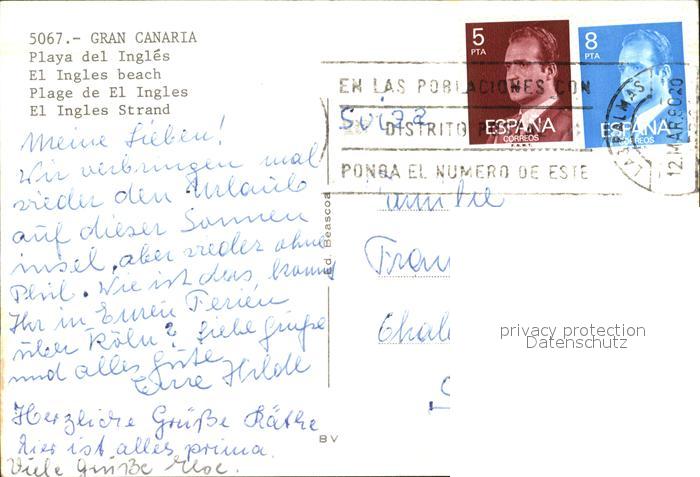 5067.- GRAN CANARIA
Playa del Inglés
El Ingles beach
Plage de El Ingles
El Ingles Strand
Meine Lieben!
Wir verbringen mal
wieder den Urlaub
auf dieser Sonnen
insel, aber wieder ohne
Phil. Wie ist das, kommt
Ihr in Euren Ferien
über Köln? Liebe Grüße
und alles Gute
Eure Hilde
Herzliche Grüße Käthe
hier ist alles prima.
Viele Grüße
Ed. Beascoa
BV
5
PTA
ESPAÑA
CORREOS
F.N.M.T.
8
PTA
ESPAÑA
CORREOS
EN LAS POBLACIONES CON
DISTRITO
PONGA EL NUMERO DE ESTE
LAS PALMAS
12.MAR.80
Suiza
Familie
Fran
Chal
privacy protection
Datenschutz